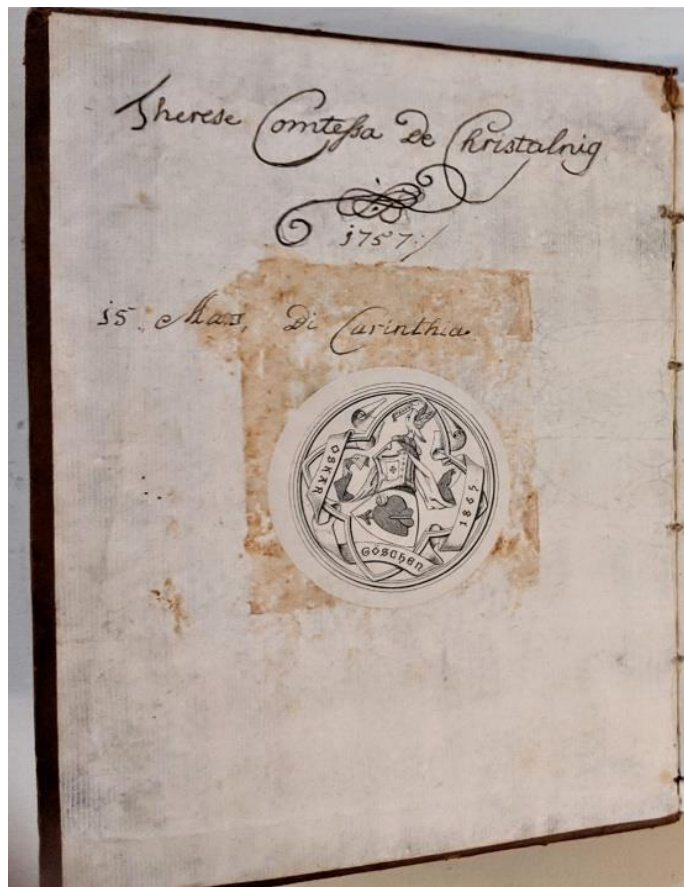 Therese Comtessa De Christalnig
1757:/
15. Maÿ, Di Carinthia
OSKAR
GÖSCHEN
1865.